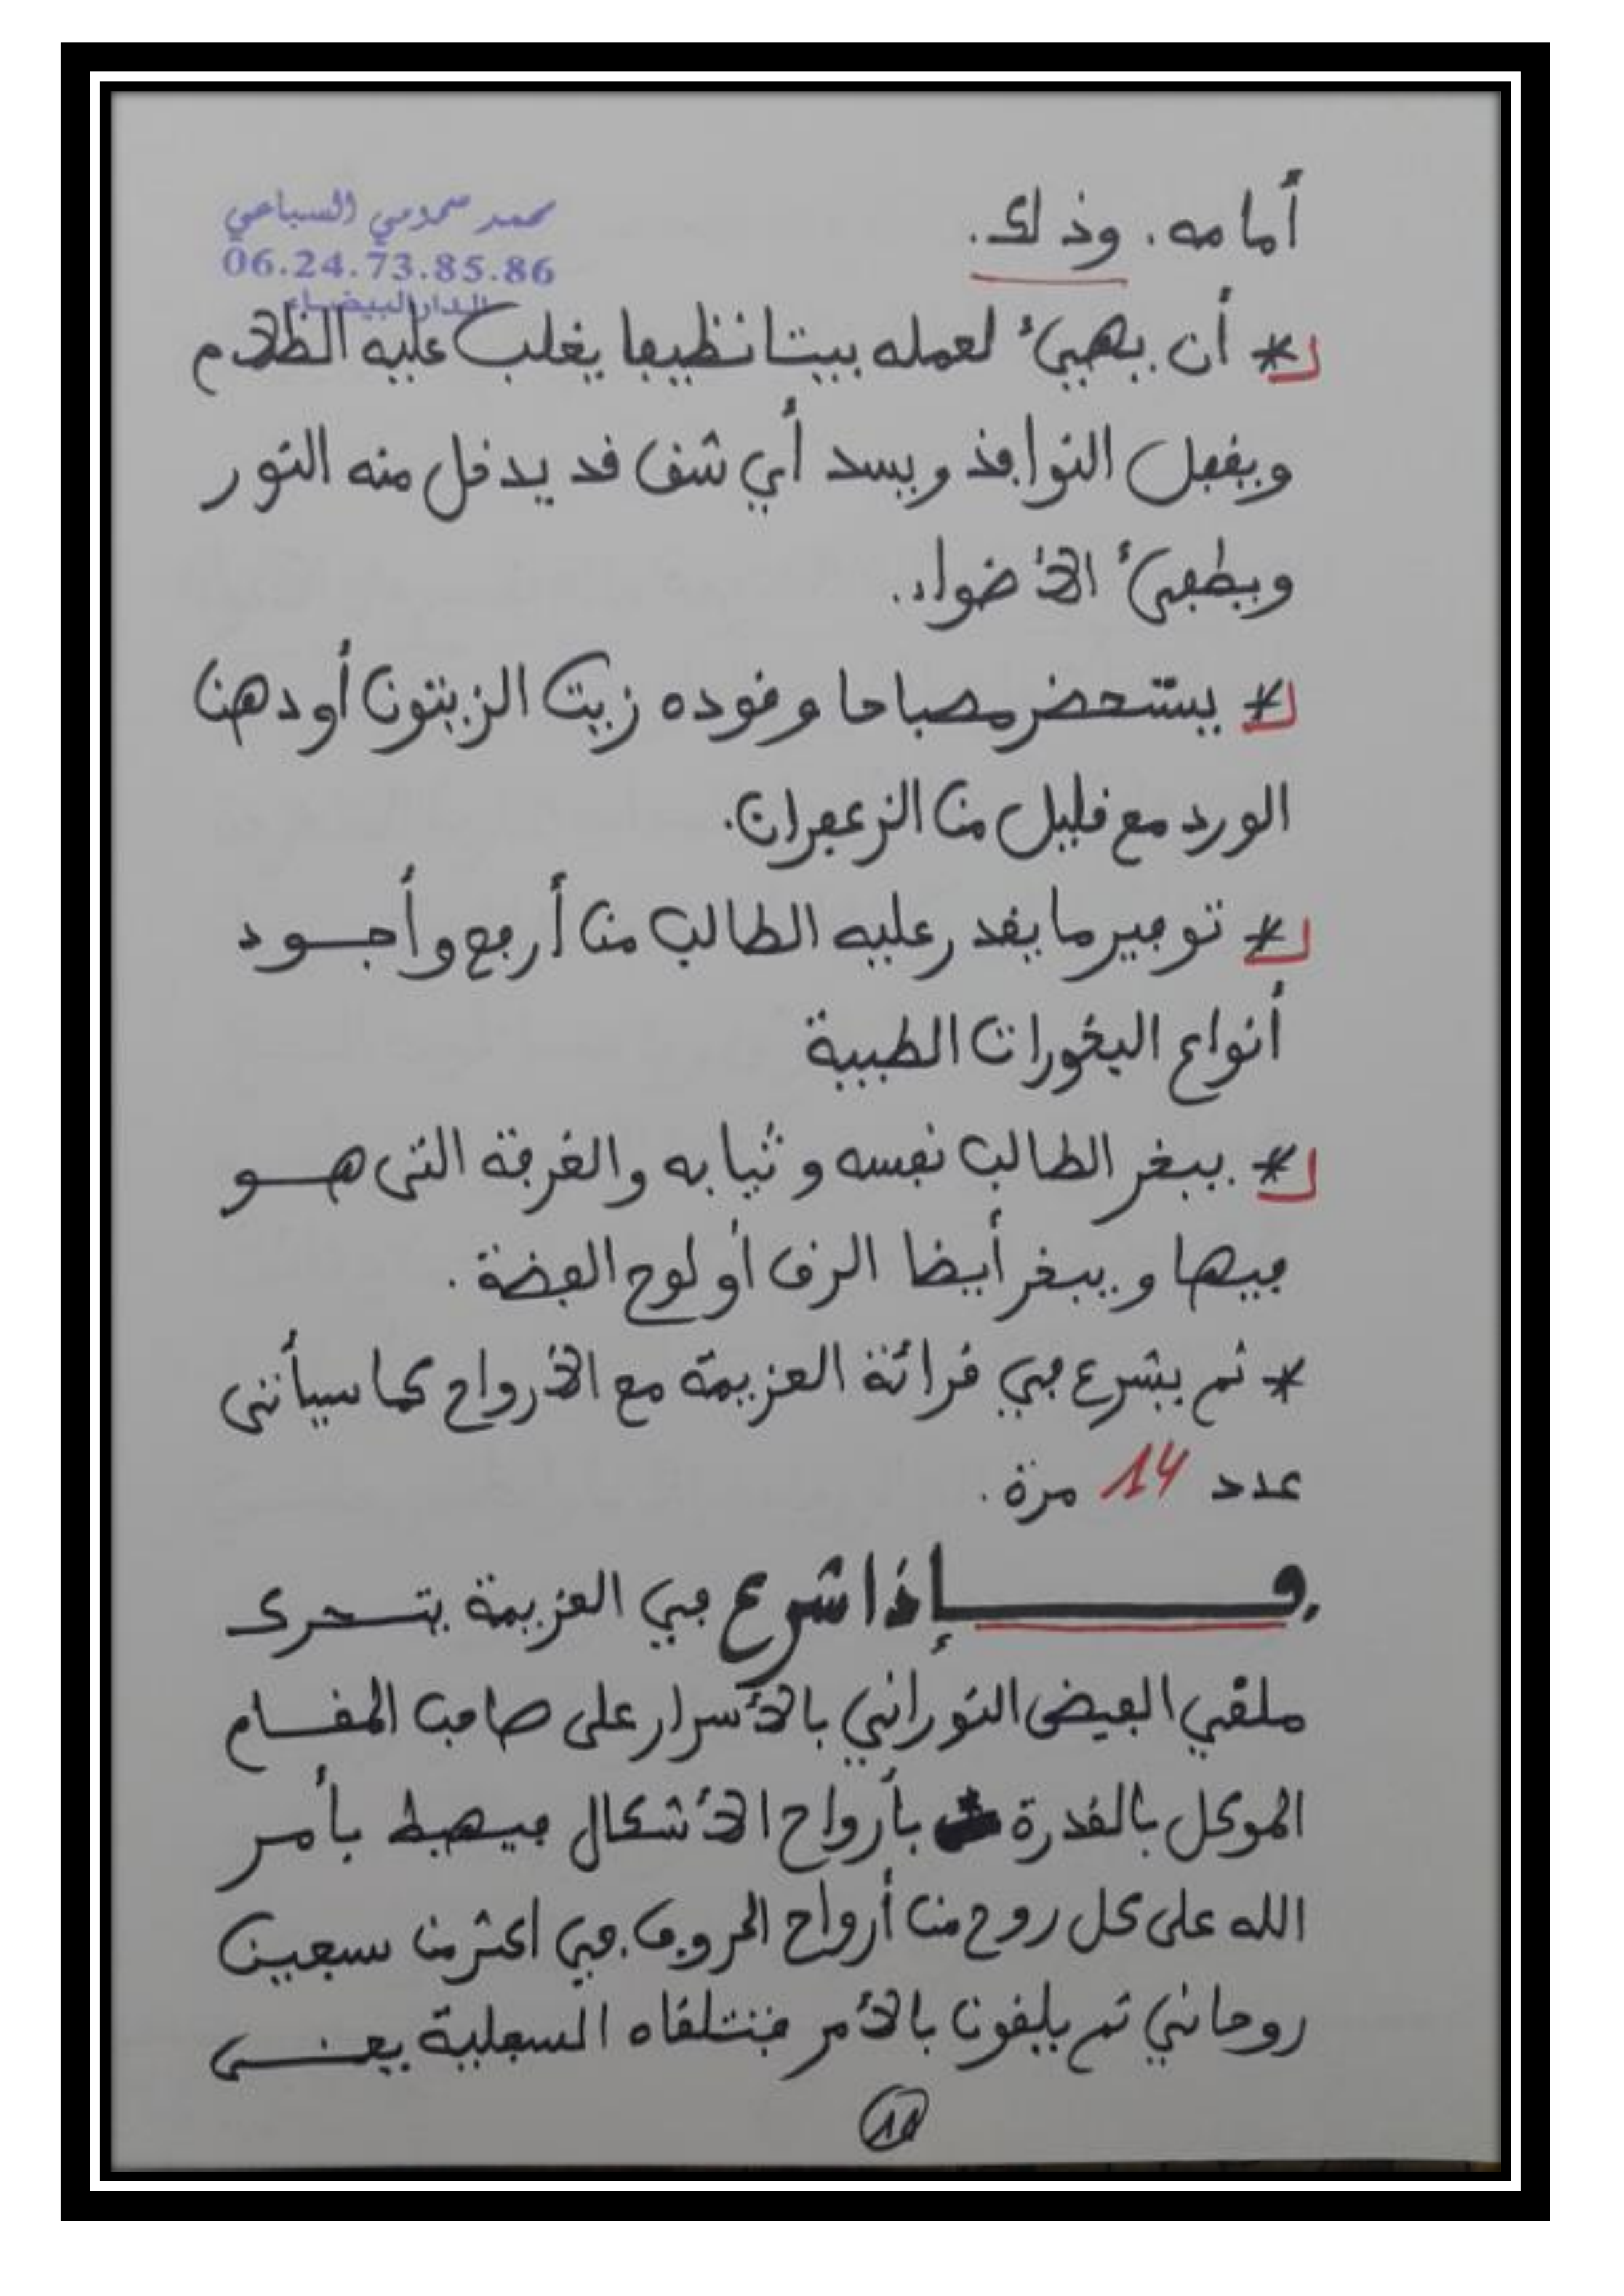 أمامه. وذلك.
محمد صحومي السباعي
06.24.73.85.86
الدار البيضاء
* أن يهيئ لعمله بيتا نظيفا يغلب عليه الظلام
ويقفل النوافذ ويسد أي شق قد يدخل منه النور
ويطفئ الأضواء.
* يستحضر مصباحا وقوده زيت الزيتون أو دهن
الورد مع قليل من الزعفران.
* توفير ما يقدر عليه الطالب من أرفع وأجود
أنواع البخورات الطيبة
* يبخر الطالب نفسه وثيابه والغرفة التى هو
فيها ويبخر أيضا الرق أو لوح الفضة.
* ثم يشرع في قرائة العزيمة مع الأرواح كما سيأتى
عدد 14 مرة.
فإذا شرع في العزيمة يتحرك
ملقي الفيض النوراني بالأسرار على صاحب المقام
الموكل بالقدرة بأرواح الأشكال فيهبط بأمر
الله على كل روح من أرواح الحروف. في اكثر من سبعين
روحاني ثم يلقون بالأمر فتتلقاه السفلية يعنى
11